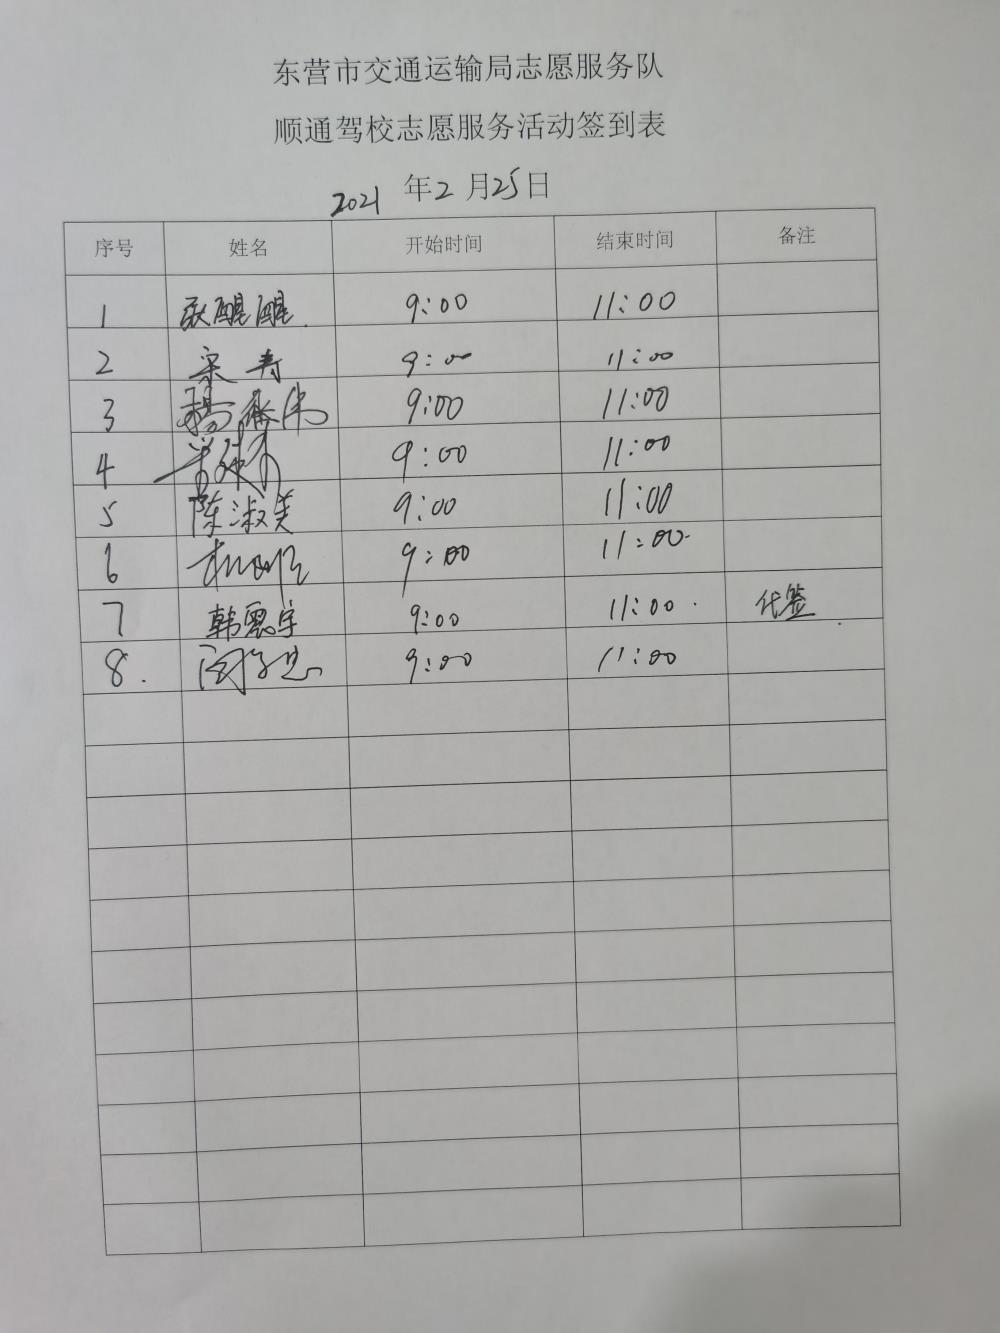 东营市交通运输局志愿服务队
顺通驾校志愿服务活动签到表
2021 年 2 月 25 日
序号 姓名 开始时间 结束时间 备注
1 耿醒醒 9:00 11:00
2 宋寿 9:00 11:00
3 杨 伟 9:00 11:00
4 9:00 11:00
5 陈淑美 9:00 11:00
6 9:00 11:00
7 韩惠宇 9:00 11:00 代签
8. 9:00 11:00